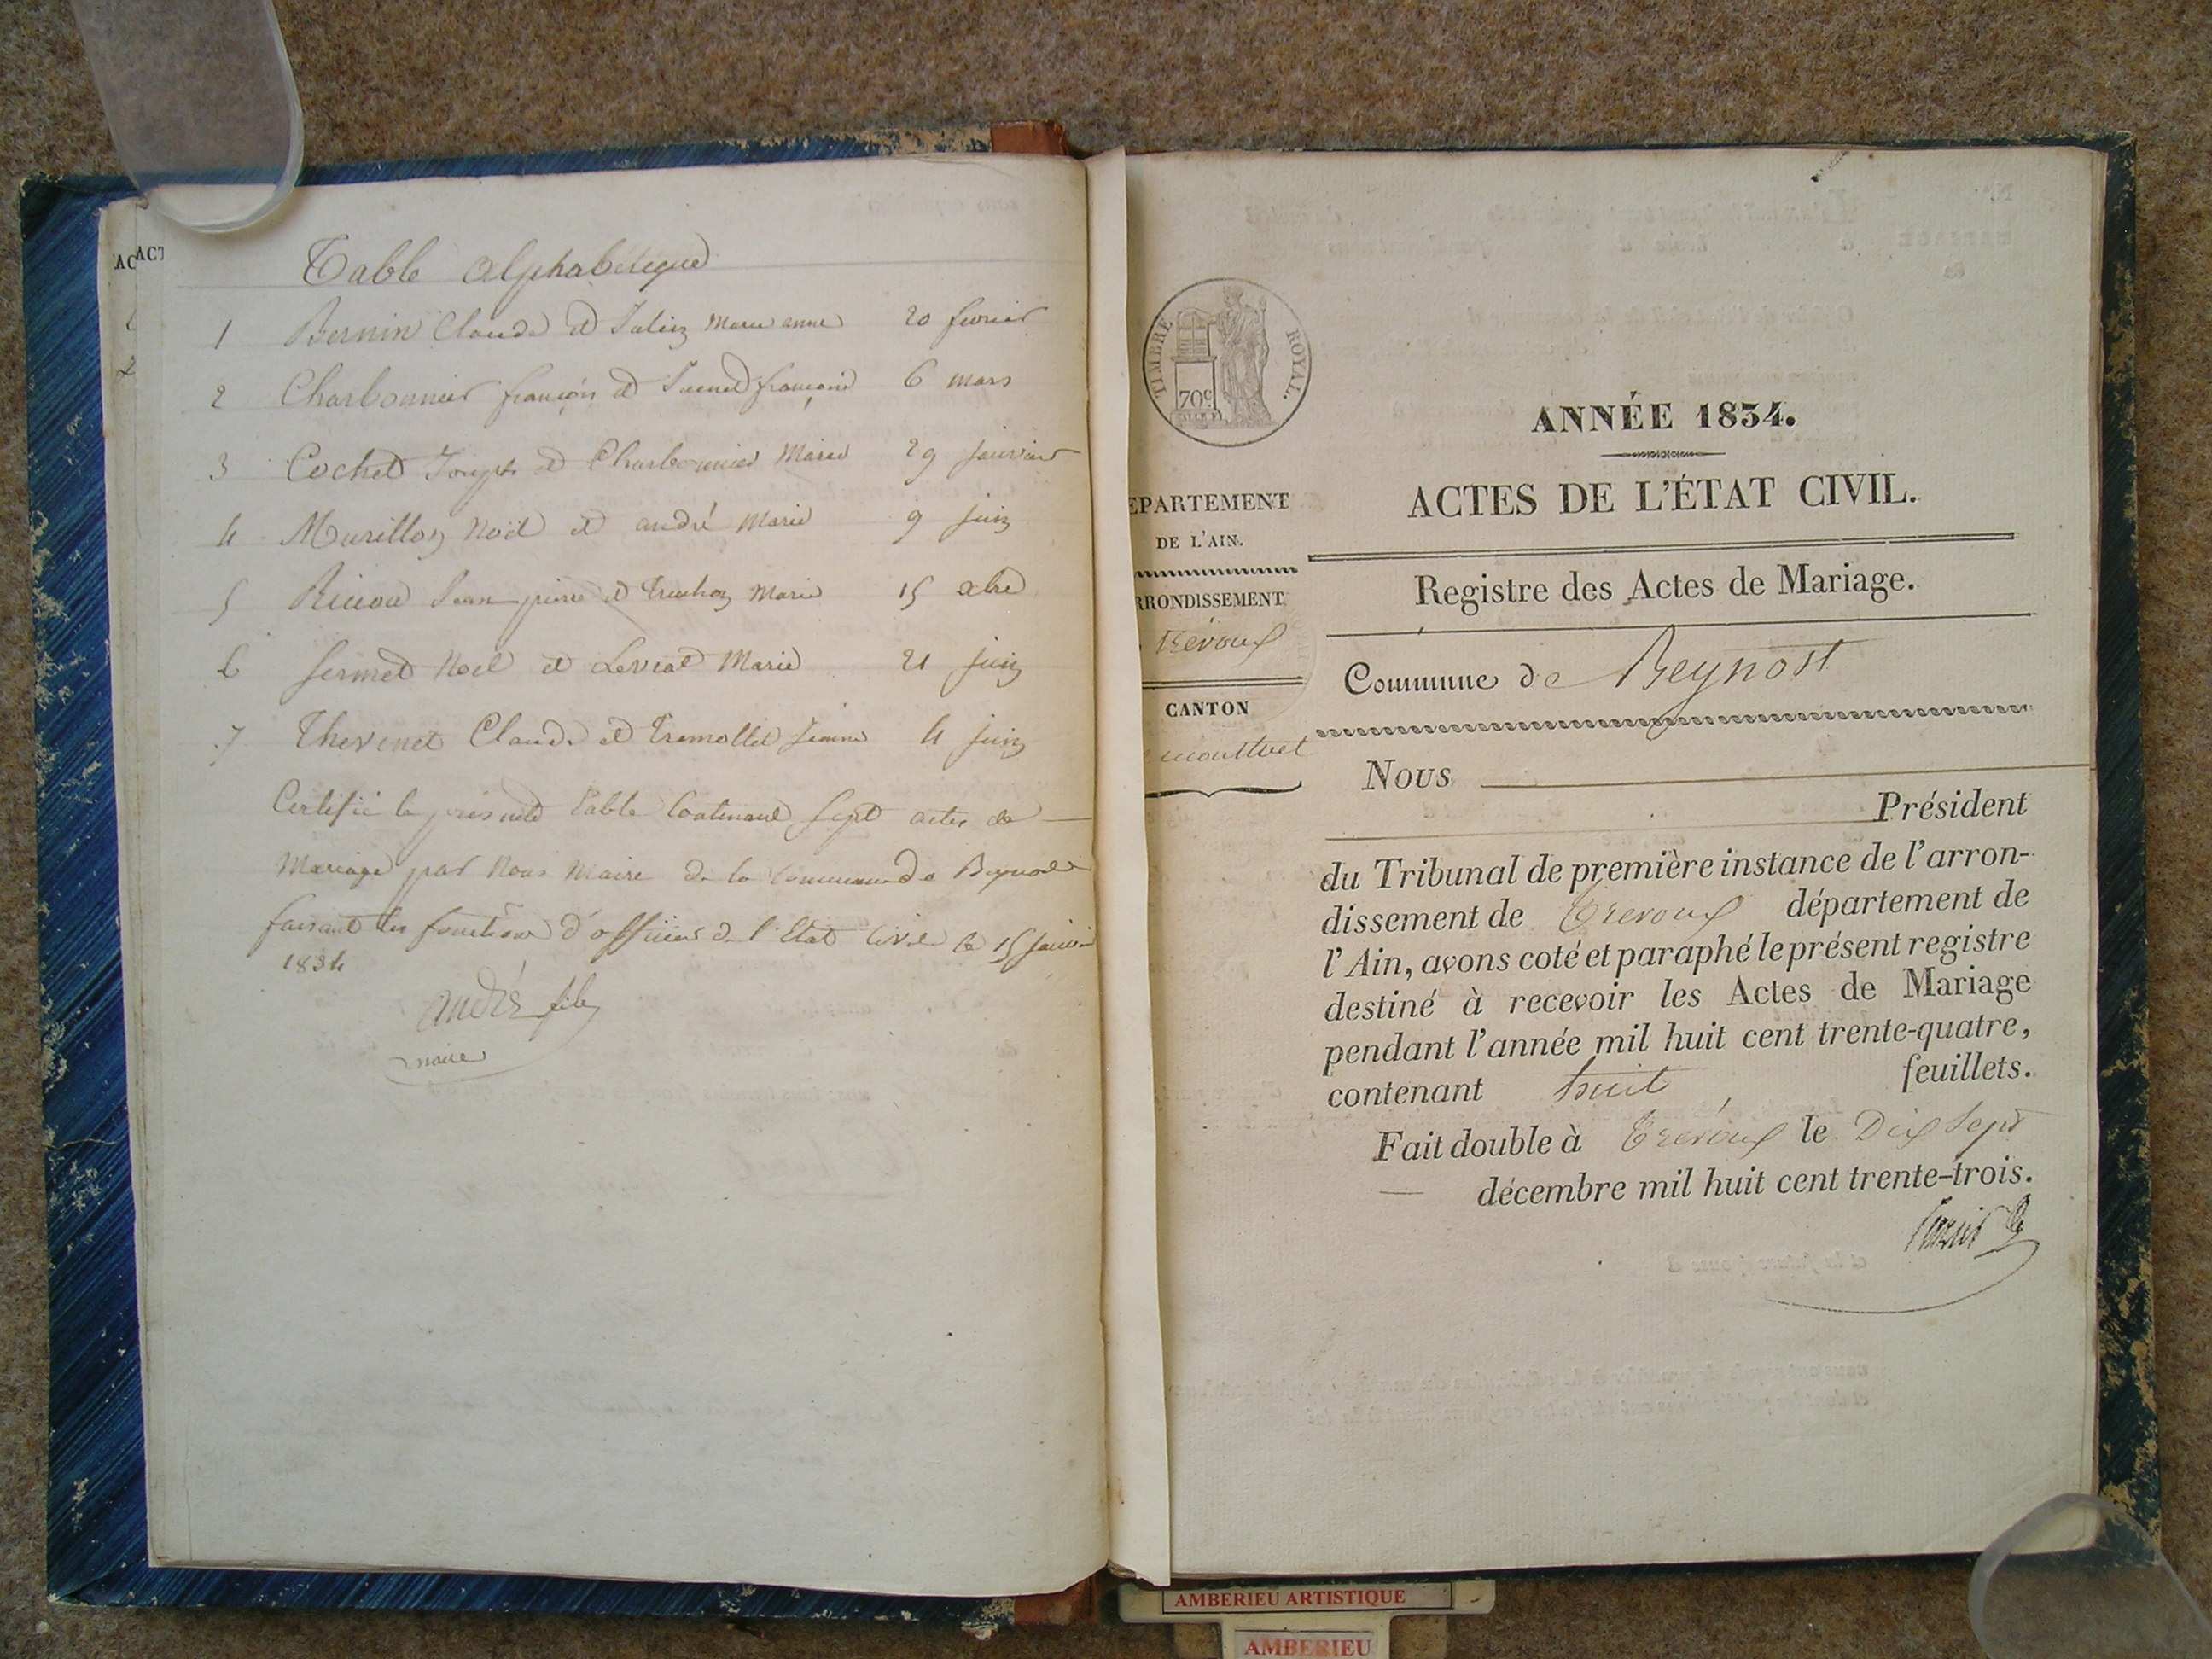 ACACT
Table alphabétique
1 Bernin Claude et Julin Marie anne 20 fevrier
2 Charbonnier françois et françoise 6 mars
3 Cochet Joseph et Charbonnier Marie 29 janvier
4 Murillon Noël et andré Marie 9 juin
5 Jean pierre et Truchon Marie 15 xbre
6 fermet Noel et Levrat Marie 21 juin
7 Thevenet Claude et Tremollet jeanne 4 juin
Certifié la présente table contenant sept actes de
Mariage par Nous Maire de la commune de Beynost
faisant les fonctions d'officier de l'Etat Civil le 15 janvier
1834
andré fils
maire
TIMBRE ROYAL.
70c
ANNÉE 1834.
ACTES DE L'ÉTAT CIVIL.
EPARTEMENT
DE L'AIN.
RRONDISSEMENT
Trévoux
CANTON
montluel
Registre des Actes de Mariage.
Commune de Beynost
Nous
Président
du Tribunal de première instance de l'arron-
dissement de Trevoux département de
l'Ain, avons coté et paraphé le présent registre
destiné à recevoir les Actes de Mariage
pendant l'année mil huit cent trente-quatre,
contenant huit feuillets.
Fait double à Trévoux le Dix Sept
décembre mil huit cent trente-trois.
AMBERIEU ARTISTIQUE
AMBERIEU